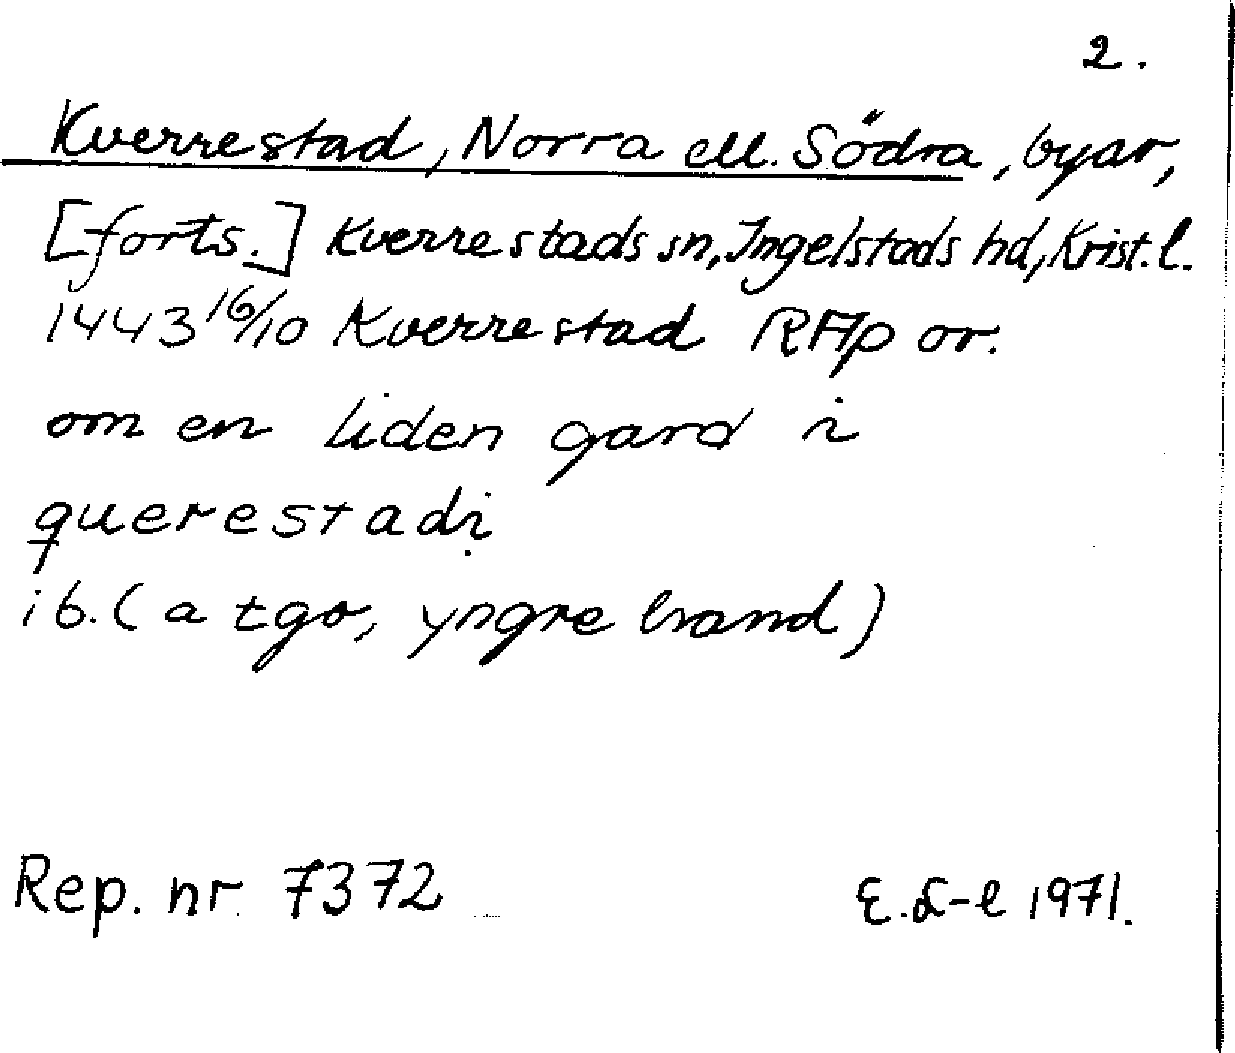 2.
Kverrestad, Norra ell. Södra, byar,
[forts.] Kverrestads sn, Ingelstads hd, Krist. l.
1443 16/10 Kverrestad RAp or.
om en liden gard i
querestadi
ib. (a tgo, yngre hand)
Rep. nr 7372
E. L-l 1971.